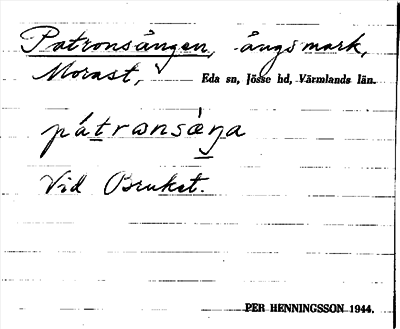 Patronsängen, ängsmark,
Morast, Eda sn, Jösse hd, Värmlands län.
pátronsæ̀ŋa
Vid Bruket.
PER HENNINGSSON 1944.